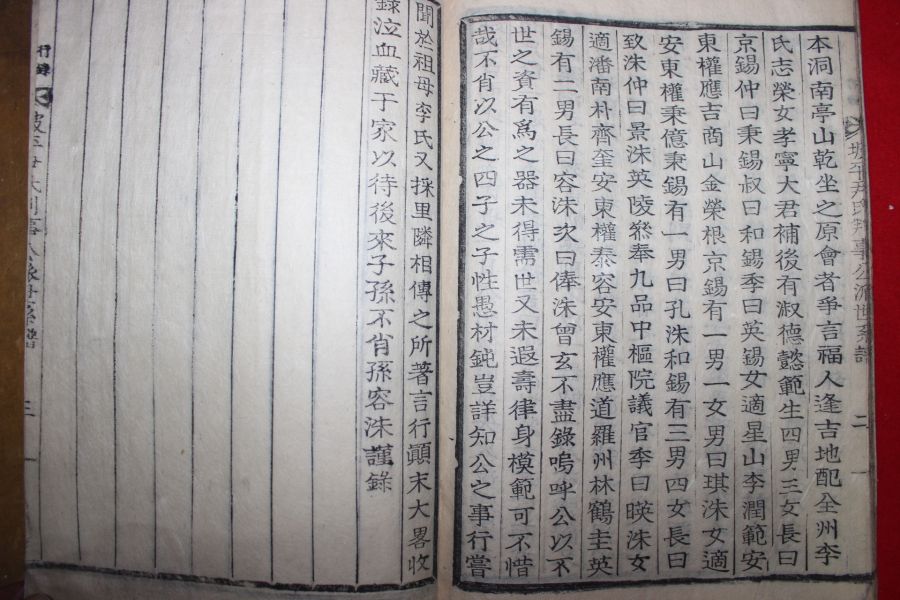 坡平尹氏判事公派世系譜 二
本洞南亭山乾坐之原會者爭言福人逢吉地配全州李
氏志榮女孝寧大君補後有淑德懿範生四男三女長曰
京錫仲曰秉錫叔曰和錫季曰英錫女適星山李潤範安
東權應吉商山金榮根京錫有一男一女男曰琪洙女適
安東權秉億秉錫有一男曰孔洙和錫有三男四女長曰
致洙仲曰景洙英陵叅奉九品中樞院議官季曰暎洙女
適潘南朴齊奎安東權泰容安東權應道羅州林鶴圭英
錫有二男長曰容洙次曰俸洙曾玄不盡錄嗚呼公以不
世之資有爲之器未得需世又未遐壽律身模範可不惜
哉不肖以公之四子之子性愚材鈍豈詳知公之事行嘗
聞於祖母李氏又採里隣相傳之所著言行顚末大畧收
錄泣血藏于家以待後來子孫不肖孫容洙謹錄
行錄
三